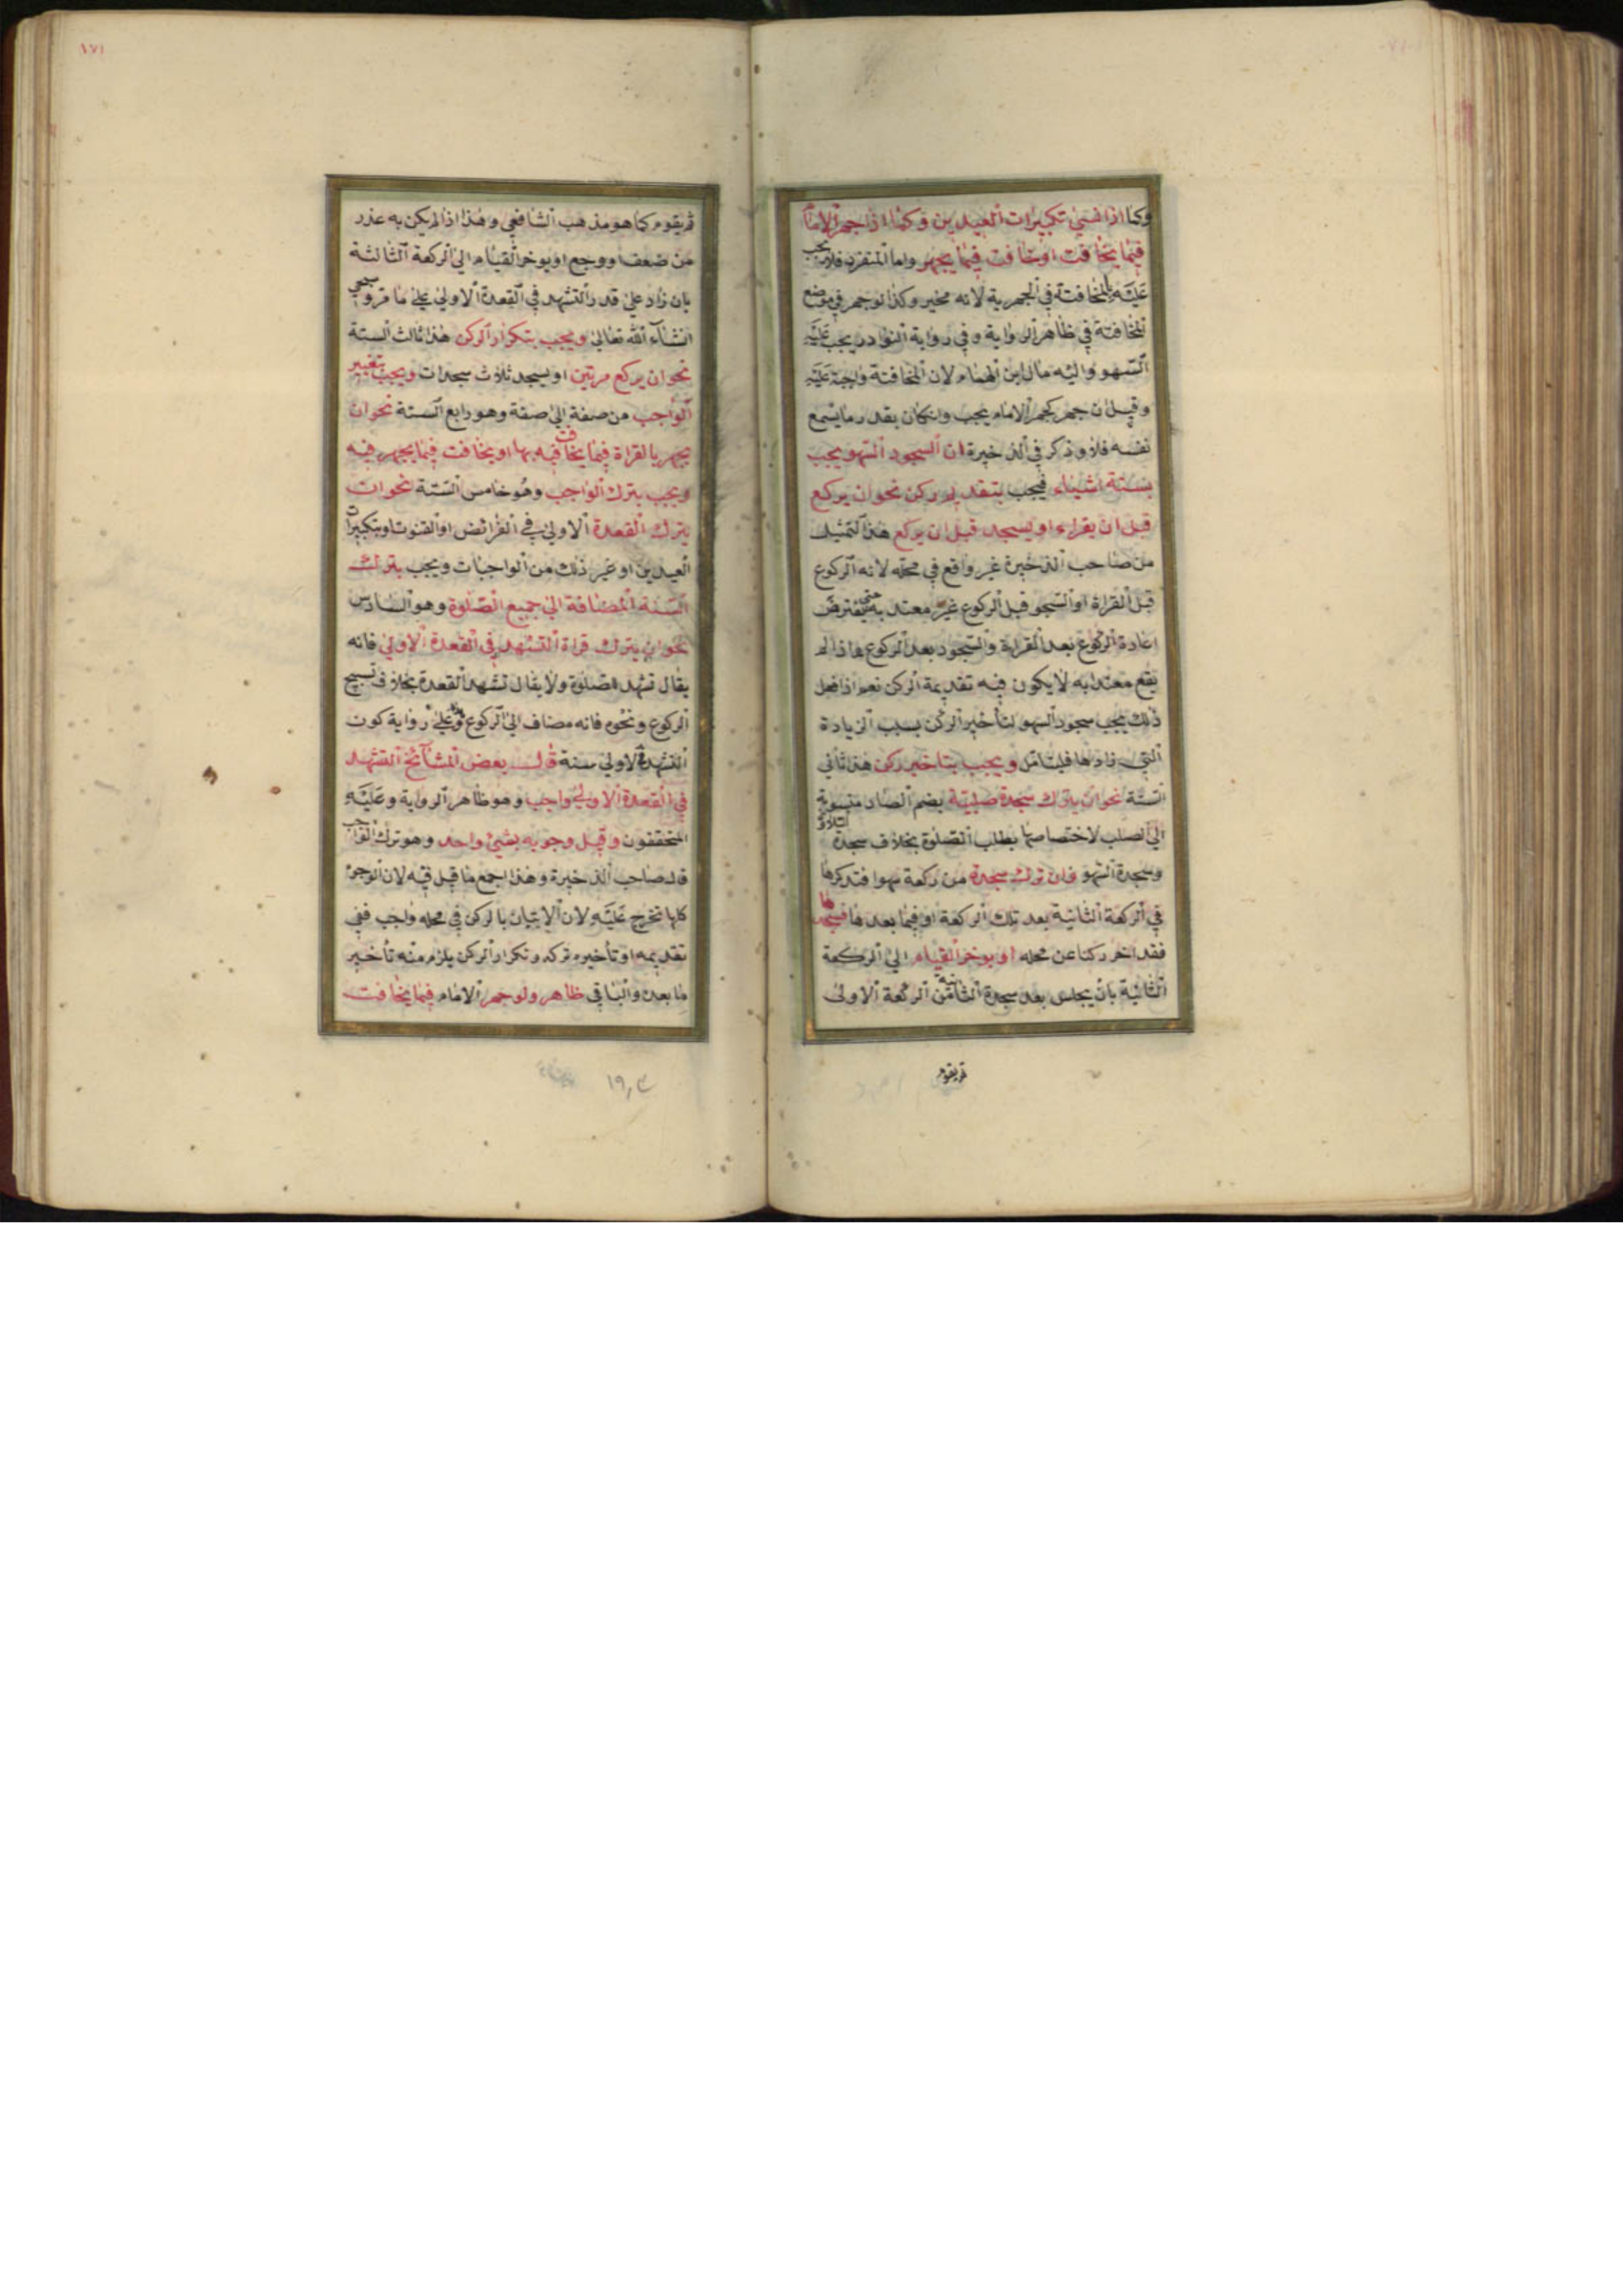 وكذا اذا نسي تكبيرات العيدين وكذا اذا جهر الامام
فيما يخافت او خافت فيما يجهر واما المنفرد فلا يجب
عليه بالمخافتة في الجهرية لانه مخير وكذا لو جهر في موضع
المخافتة في ظاهر الرواية وفي رواية النوادر يجب عليه
السهو واليه مال ابن الهمام لان المخافتة واجبة عليه
وقيل ان جهر كجهر الامام يجب وانكان بقدر ما يسمع
نفسه فلا وذكر في الذخيرة ان السجود السهو يجب
بستة اشياء فيجب بتقديم ركن نحو ان يركع
قبل ان يقراء او يسجد قبل ان يركع هذا التمثيل
من صاحب الذخيرة غير واقع في محله لانه الركوع
قبل القراة او السجو قبل الركوع غير معتد به حتى يفترض
اعادة الركوع بعد القراءة والسجود بعد الركوع فاذا لم
يقع معتدا به لا يكون فيه تقديمة الركن نعم اذا فعل
ذلك يجب سجود السهو لتأخير الركن بسبب الزيادة
التي زادها فليتامل ويجب بتاخير ركن هذا ثاني
الستة نحو ان يترك سجدة صلبية بضم الصاد منسوبة
الي الصلب لاختصاصها بصلب الصلوة بخلاف سجدة التلاوة
وسجدة السهو فان ترك سجدة من ركعة سهوا فتذكرها
في الركعة الثانية بعد تلك الركعة او فيما بعدها فسجدها
فقد اخر ركنا عن محله او يوخر القيام الي الركعة
الثانية بان يجلس بعد سجدة الثانية من الركعة الاولى
ثم يقوم
١٧١
ثم يقوم كما هو مذهب الشافعي وهذا اذا لم يكن به عذر
من ضعف او وجع او يوخر القيام الي الركعة الثالثة
بان زاد علي قدر التشهد في القعدة الاولي علي ما مر وسيجي
انشاء الله تعالي ويجب بتكرار الركن هذا ثالث الستة
نحو ان يركع مرتين او يسجد ثلاث سجدات ويجب بتغيير
الواجب من صفة الي صفة وهو رابع الستة نحو ان
يجهر بالقراة فيما يخافت فيه بها او يخافت فيما يجهر فيه
ويجب بترك الواجب وهو خامس الستة نحو ان
يترك القعدة الاولي في الفرائض او القنوت او تكبيرات
العيدين او غير ذلك من الواجبات ويجب بترك
السنة المضافة الي جميع الصلوة وهو السادس
نحو ان يترك قراة التشهد في القعدة الاولي فانه
يقال تشهد الصلوة ولا يقال تشهد القعدة بخلاف تسبيح
الركوع ونحوه فانه مضاف الي الركوع وعلي رواية كون
التشهد الاولي سنة قال بعض المشائخ التشهد
في القعدة الاولي واجب وهو ظاهر الرواية وعليه
المحققون وقيل وجوبه بشيئ واحد وهو ترك الواجب
قال صاحب الذخيرة وهذا اجمع ما قيل فيه لان الوجوه
كلها تخرج عليه لان الاتيان بالركن في محله واجب ففي
تقديمه او تأخيره تركه وتكرار الركن يلزم منه تأخير
ما بعده والباقي ظاهر ولو جهر الامام فيما يخافت